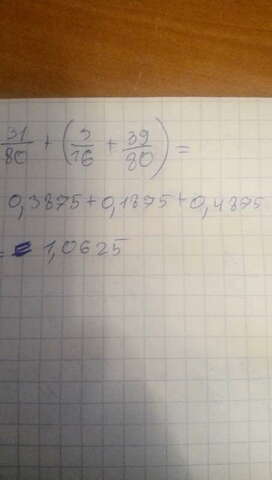 31/80 + (3/16 + 39/80) =
0,3875 + 0,1875 + 0,4875
= 1,0625